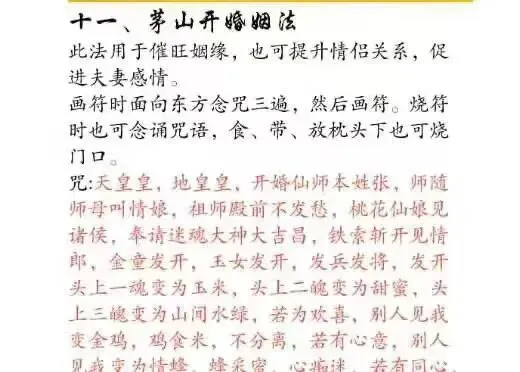 十一、茅山开婚姻法
此法用于催旺姻缘，也可提升情侣关系，促
进夫妻感情。
画符时面向东方念咒三遍，然后画符。烧符
时也可念诵咒语，食、带、放枕头下也可烧
门口。
咒:天皇皇，地皇皇，开婚仙师本姓张，师随
师母叫情娘，祖师殿前不发愁，桃花仙娘见
诸侯，奉请迷魂大神大吉昌，铁索斩开见情
郎，金童发开，玉女发开，发兵发将，发开
头上一魂变为玉米，头上二魄变为甜蜜，头
上三魄变为山间水绿，若为欢喜，别人见我
变金鸡，鸡食米，不分离，若有心意，别人
见我变为情蜂，蜂采蜜，心痴迷，若有同心，